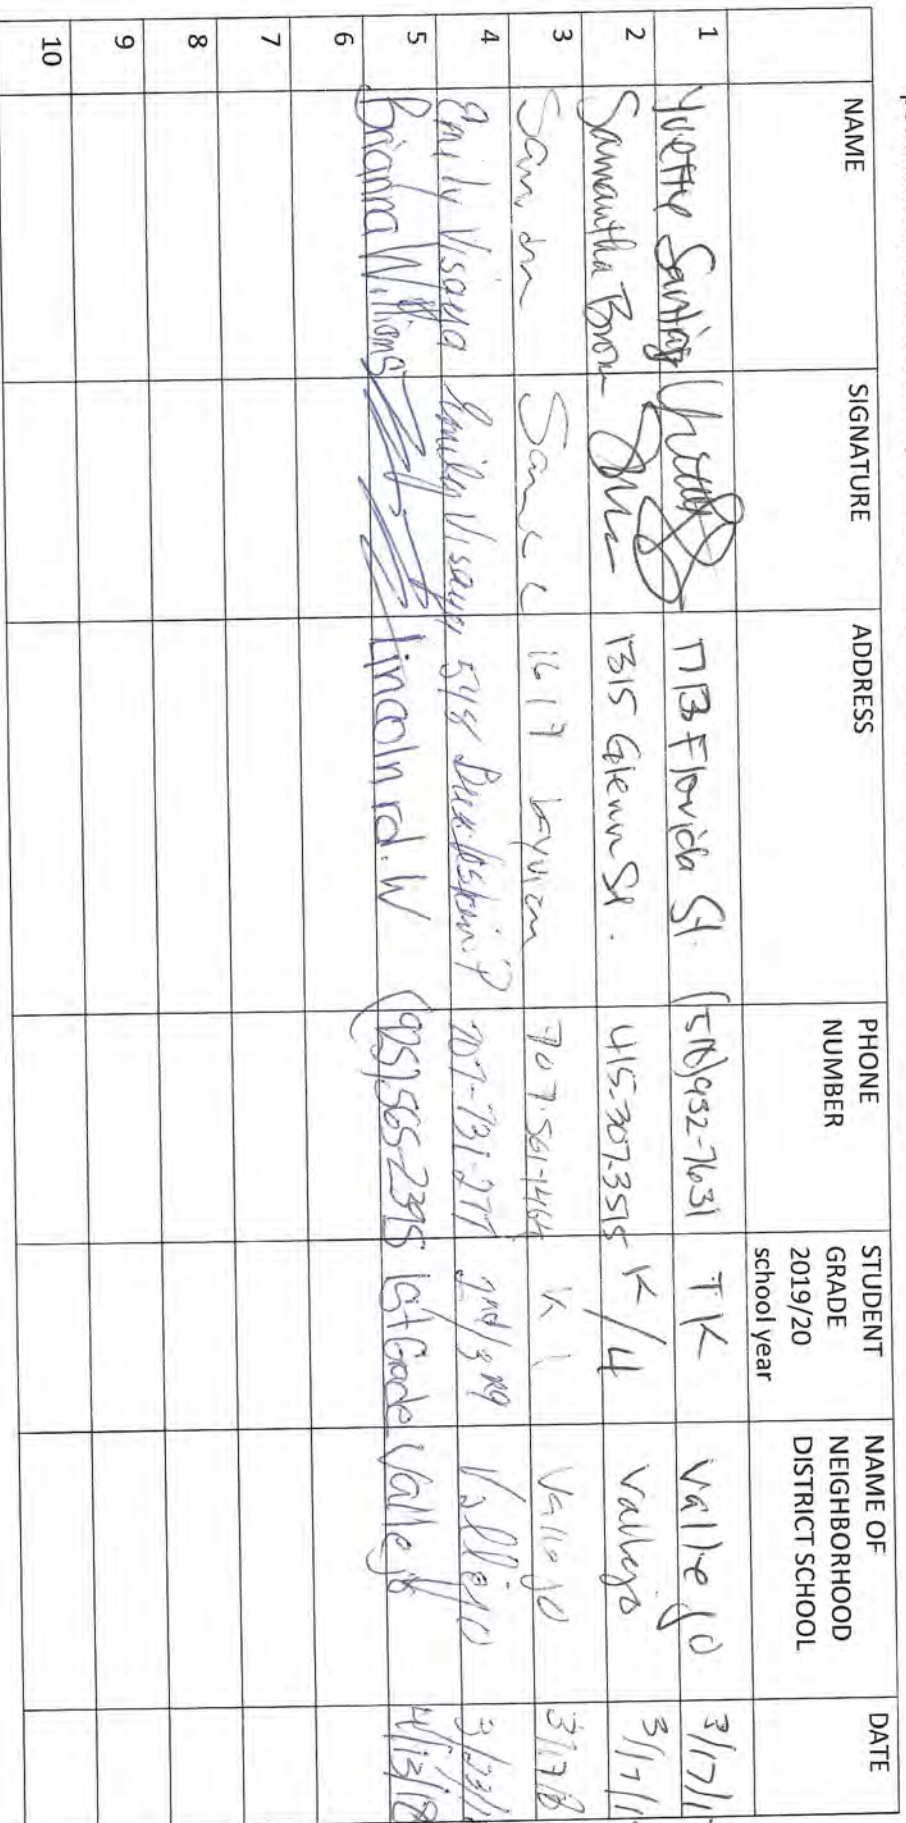 NAME SIGNATURE ADDRESS PHONE NUMBER STUDENT GRADE 2019/20 school year NAME OF NEIGHBORHOOD DISTRICT SCHOOL DATE
1 Yvette 1713 Florida St. (510) 932-7631 TK Vallejo 3/17/1
2 Samantha Brown 1315 Glenn St. 415-307-3515 K/4 Vallejo 3/17/1
3 Sandra 1617 707-561-1464 K 1 Vallejo 3/17/18
4 Emily Visaya Emily Visaya 548 707-731-277 2nd/3rd Vallejo 3/23/1
5 Brianna Williams Lincoln rd. W (925) 565-2395 1st Grade Vallejo 4/13/18
6
7
8
9
10